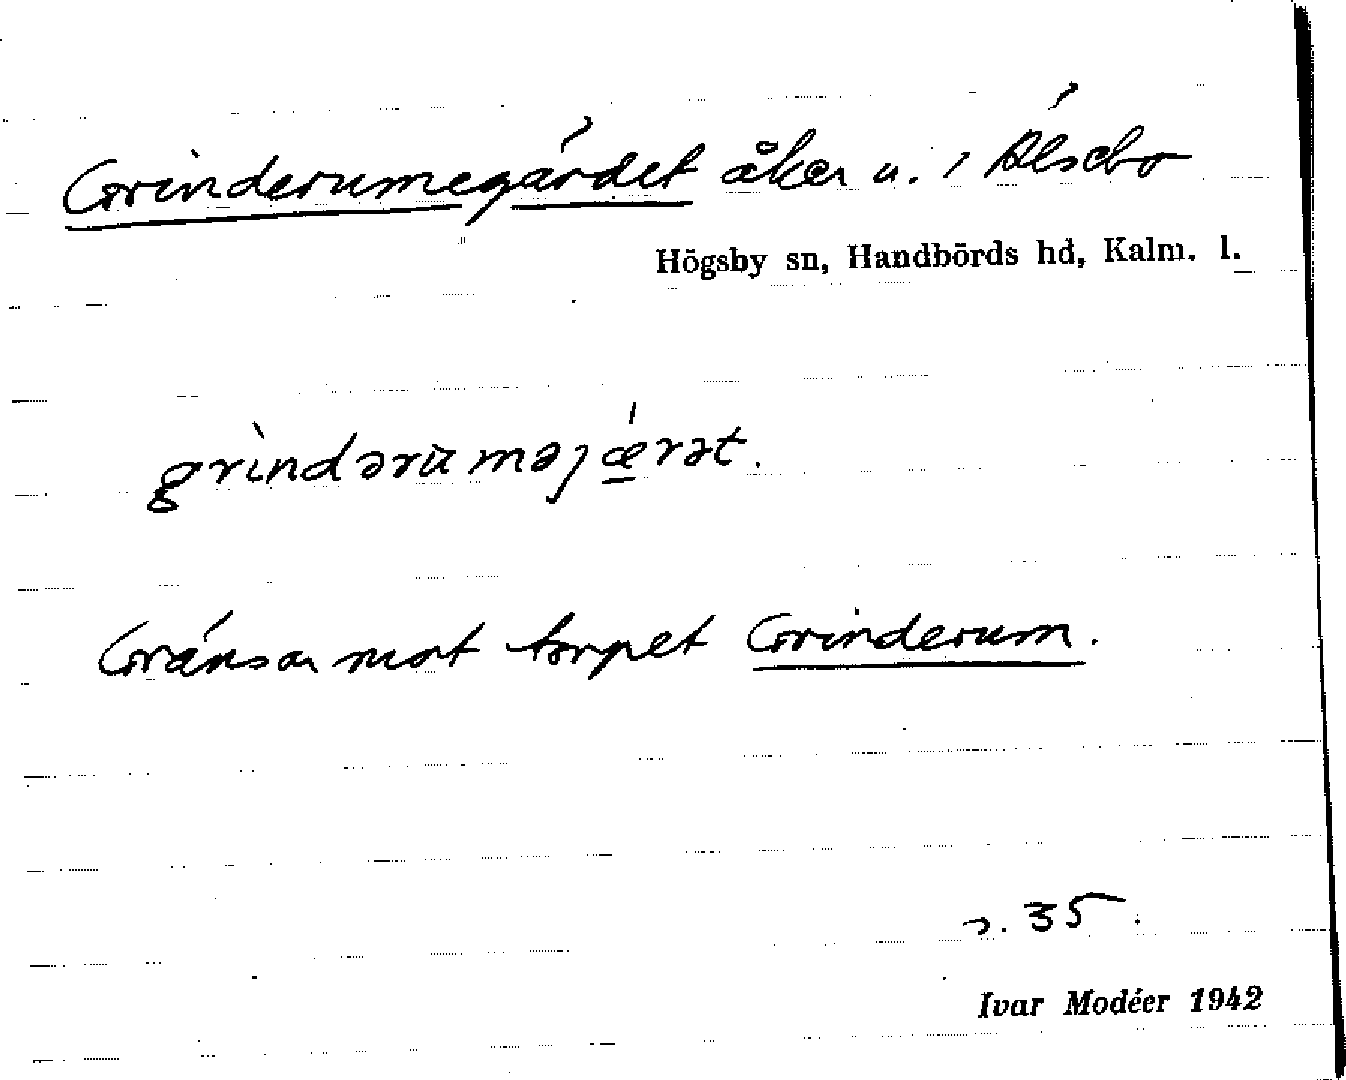 Grinderumegärdet åker u. i Älsebo
Högsby sn, Handbörds hd, Kalm. l.
grìndəruməjǽrət.
Gränsar mot torpet Grinderum.
s. 35.
Ivar Modéer 1942